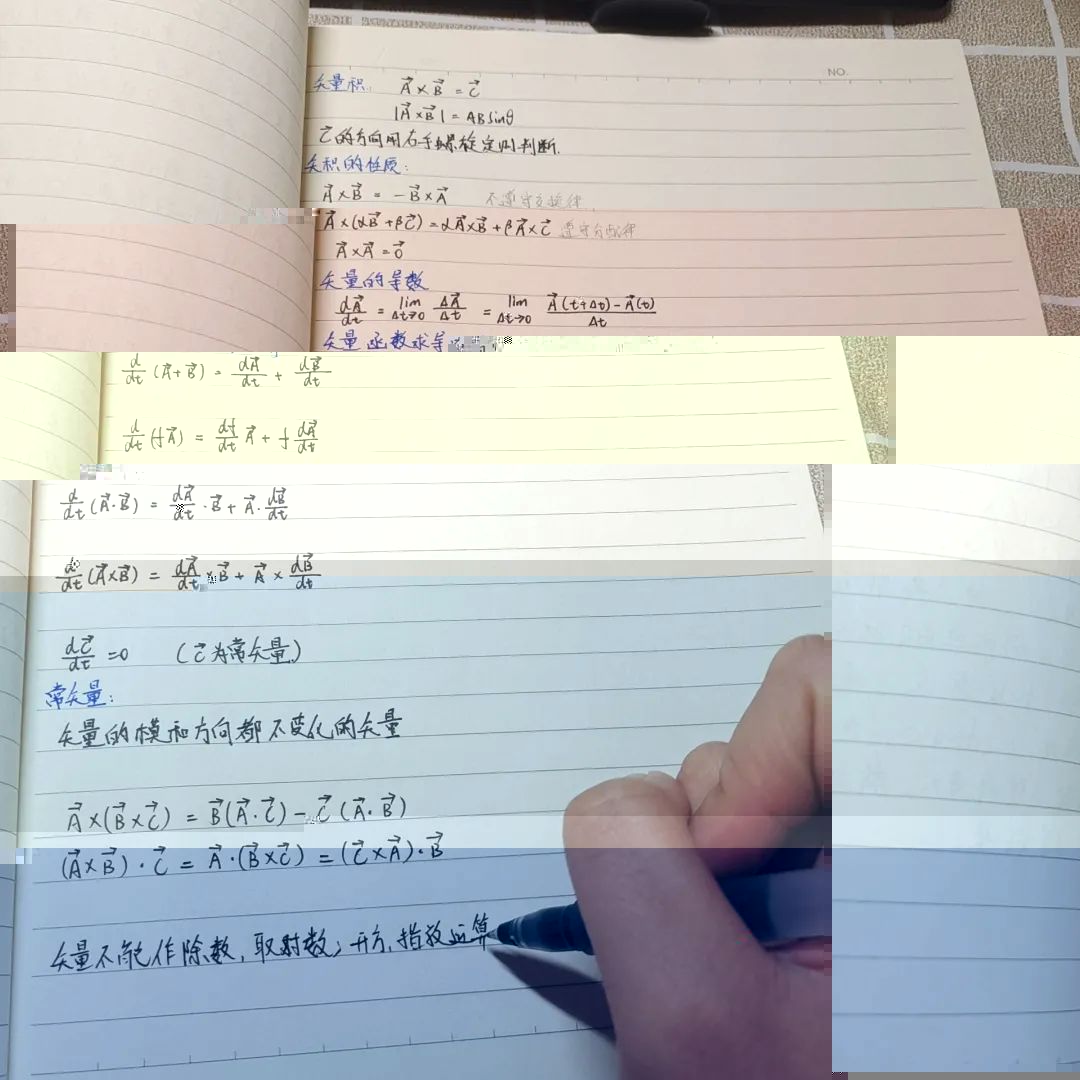 NO.
矢量积: $\vec{A}\times\vec{B}=\vec{C}$
$|\vec{A}\times\vec{B}|=AB\sin\theta$
$\vec{C}$的方向用右手螺旋定则判断.
矢积的性质:
$\vec{A}\times\vec{B}=-\vec{B}\times\vec{A}$ 不遵守交换律
$\vec{A}\times(\alpha\vec{B}+\beta\vec{C})=\alpha\vec{A}\times\vec{B}+\beta\vec{A}\times\vec{C}$ 遵守分配律
$\vec{A}\times\vec{A}=\vec{0}$
矢量的导数
$\frac{d\vec{A}}{dt}=\lim_{\Delta t\to 0}\frac{\Delta\vec{A}}{\Delta t}=\lim_{\Delta t\to 0}\frac{\vec{A}(t+\Delta t)-\vec{A}(t)}{\Delta t}$
矢量函数求导
$\frac{d}{dt}(\vec{A}+\vec{B})=\frac{d\vec{A}}{dt}+\frac{d\vec{B}}{dt}$
$\frac{d}{dt}(f\vec{A})=\frac{df}{dt}\vec{A}+f\frac{d\vec{A}}{dt}$
$\frac{d}{dt}(\vec{A}\cdot\vec{B})=\frac{d\vec{A}}{dt}\cdot\vec{B}+\vec{A}\cdot\frac{d\vec{B}}{dt}$
$\frac{d}{dt}(\vec{A}\times\vec{B})=\frac{d\vec{A}}{dt}\times\vec{B}+\vec{A}\times\frac{d\vec{B}}{dt}$
$\frac{d\vec{C}}{dt}=0$ ($\vec{C}$为常矢量)
常矢量:
矢量的模和方向都不变化的矢量
$\vec{A}\times(\vec{B}\times\vec{C})=\vec{B}(\vec{A}\cdot\vec{C})-\vec{C}(\vec{A}\cdot\vec{B})$
$(\vec{A}\times\vec{B})\cdot\vec{C}=\vec{A}\cdot(\vec{B}\times\vec{C})=(\vec{C}\times\vec{A})\cdot\vec{B}$
矢量不能作除数, 取对数, 开方, 指数运算